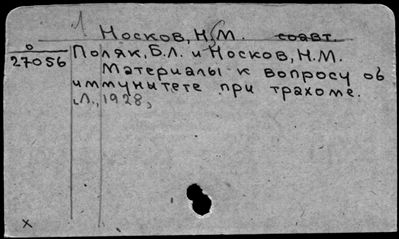 1
Носков, Н. М. соавт.
0
27056
Поляк, Б.Л. и Носков, Н.М.
Материалы к вопросу об
иммунитете при трахоме.
Л., 1928,
x